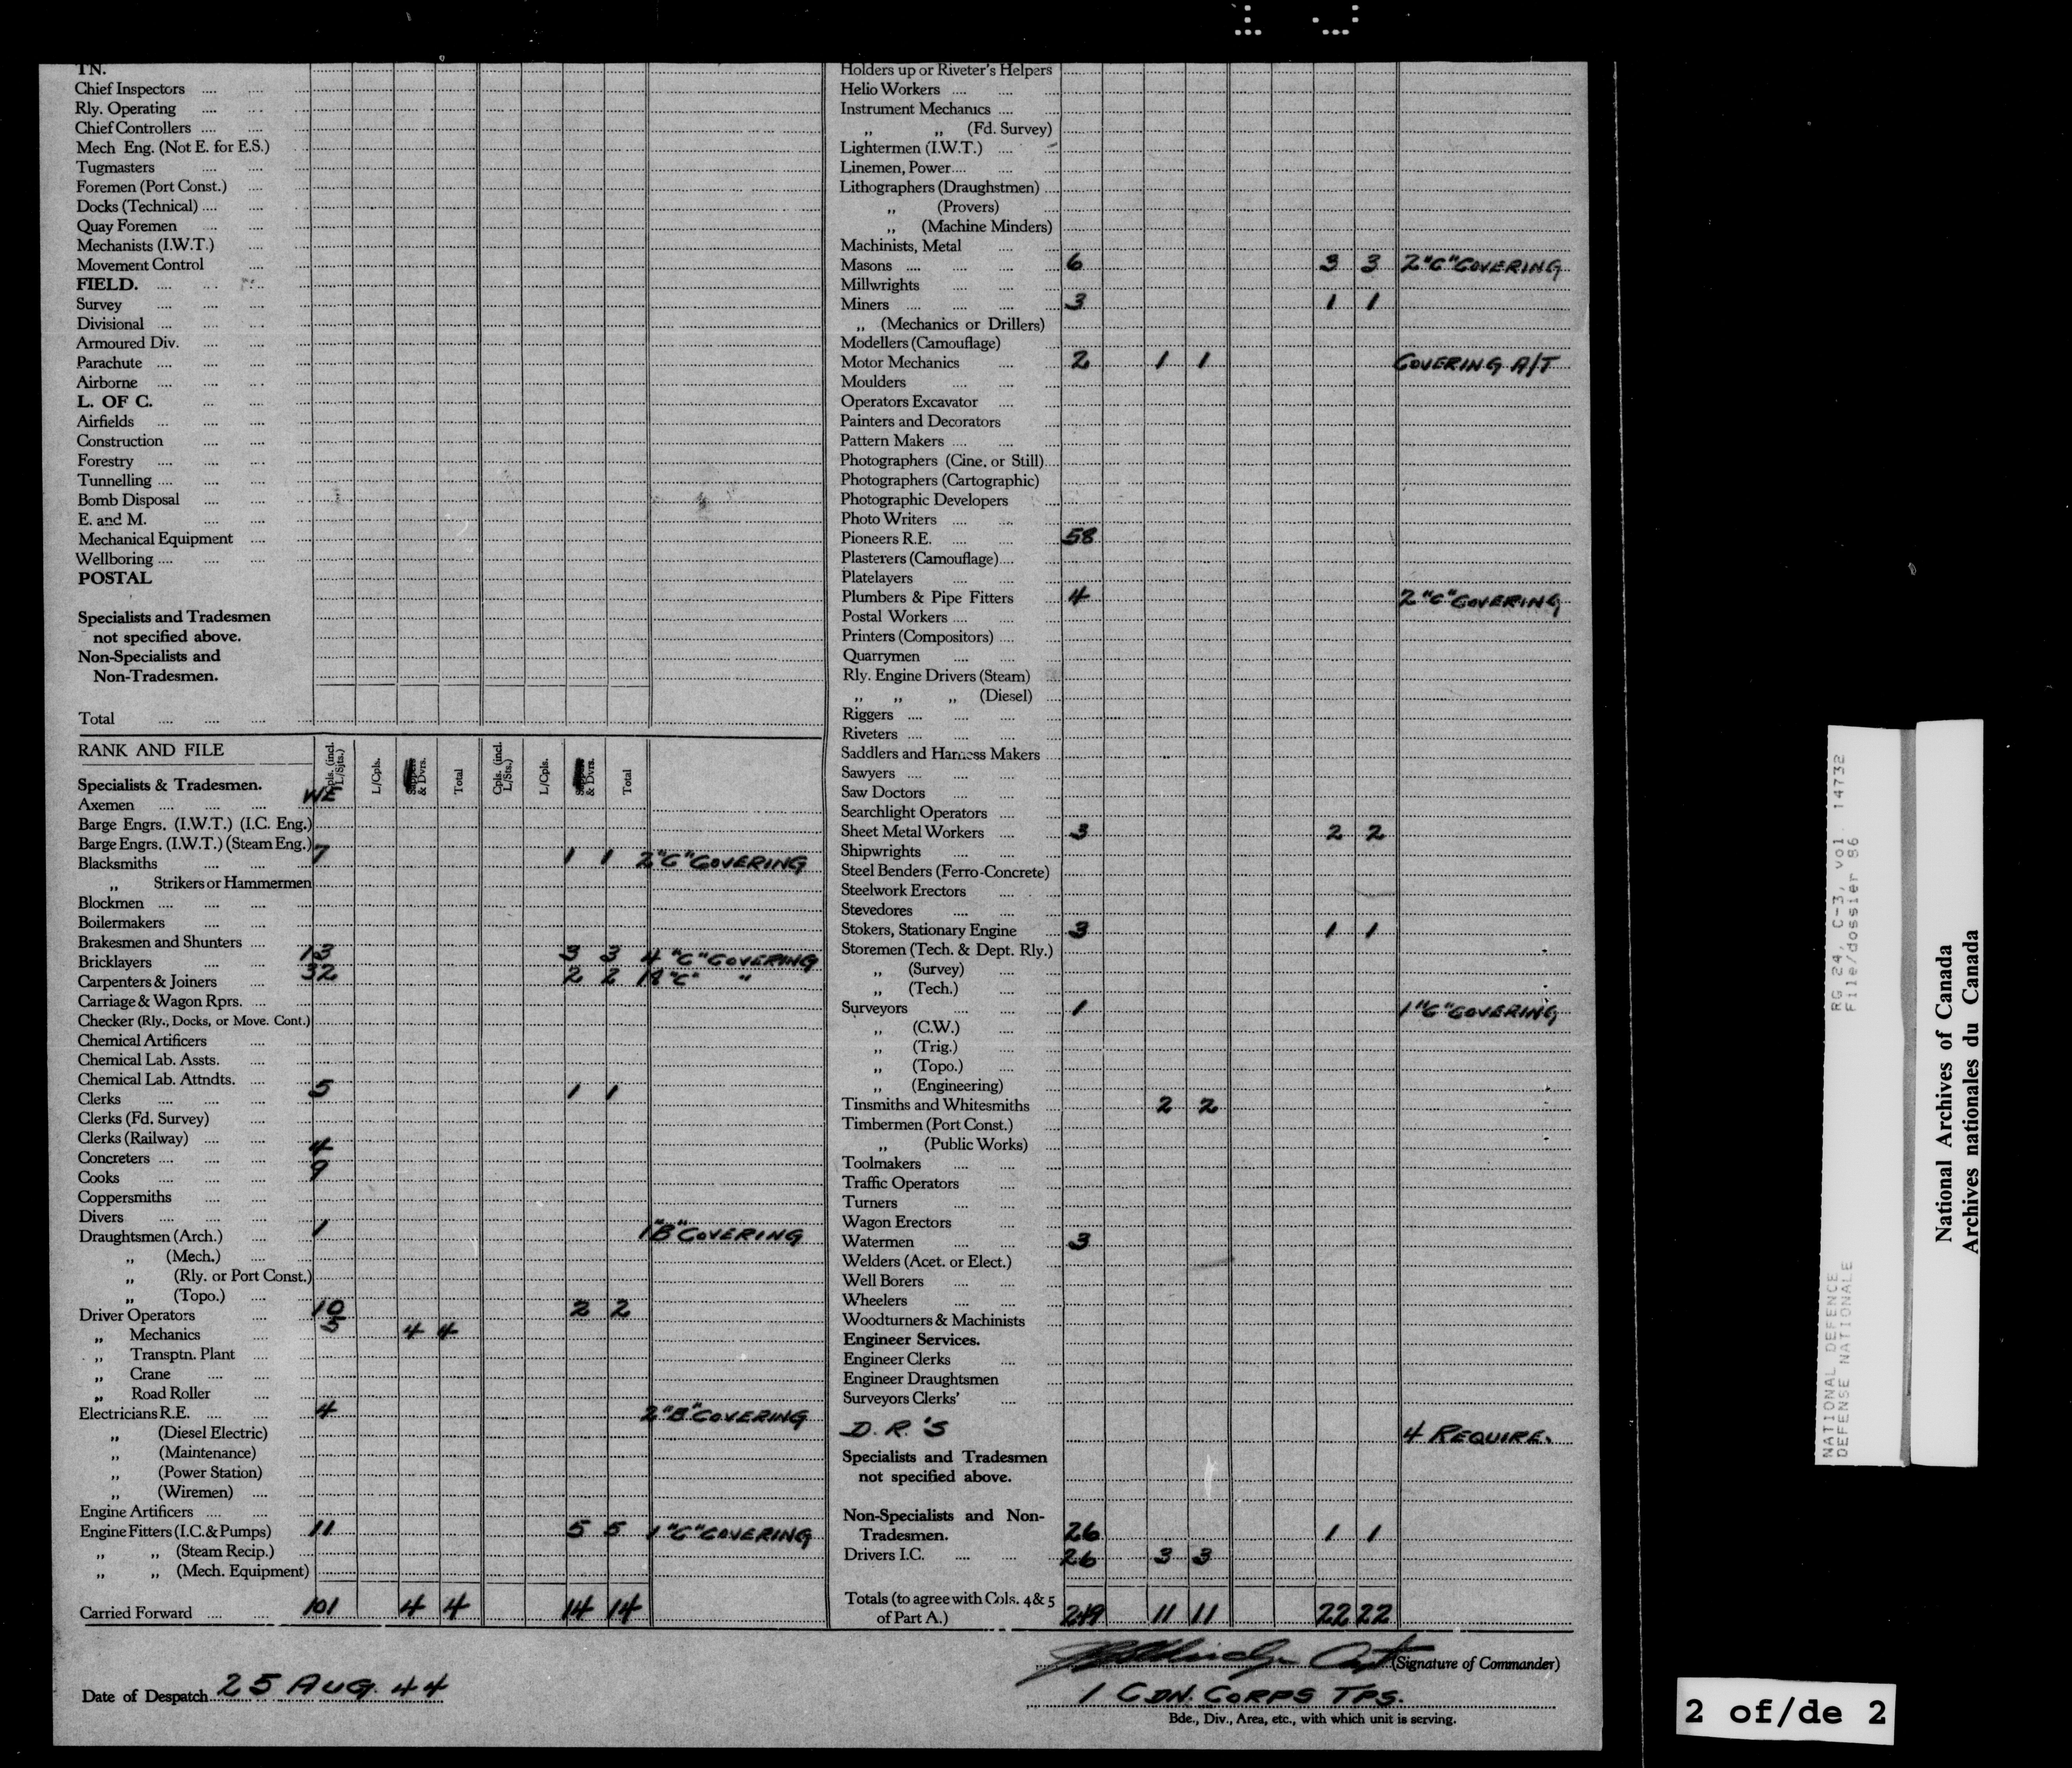 TN.
Chief Inspectors
Rly. Operating
Chief Controllers
Mech Eng. (Not E. for E.S.)
Tugmasters
Foremen (Port Const.)
Docks (Technical)
Quay Foremen
Mechanists (I.W.T.)
Movement Control
FIELD.
Survey
Divisional
Armoured Div.
Parachute
Airborne
L. OF C.
Airfields
Construction
Forestry
Tunnelling
Bomb Disposal
E. and M.
Mechanical Equipment
Wellboring
POSTAL
Specialists and Tradesmen
not specified above.
Non-Specialists and
Non-Tradesmen.
Total
RANK AND FILE
Cpls. (incl. L/Sjts.) L/Cpls. & Dvrs. Total Cpls. (incl. L/Sts.) L/Cpls. & Dvrs. Total
Specialists & Tradesmen.
WE
Axemen
Barge Engrs. (I.W.T.) (I.C. Eng.)
Barge Engrs. (I.W.T.) (Steam Eng.)
Blacksmiths 7 1 1 2 "C" COVERING
,, Strikers or Hammermen
Blockmen
Boilermakers
Brakesmen and Shunters
Bricklayers 13 3 3 4 "C" COVERING
Carpenters & Joiners 32 2 2 18 "C" "
Carriage & Wagon Rprs.
Checker (Rly., Docks, or Move. Cont.)
Chemical Artificers
Chemical Lab. Assts.
Chemical Lab. Attndts.
Clerks 5 1 1
Clerks (Fd. Survey)
Clerks (Railway)
Concreters 4
Cooks 9
Coppersmiths
Divers
Draughtsmen (Arch.) 1 1 "B" COVERING
,, (Mech.)
,, (Rly. or Port Const.)
,, (Topo.)
Driver Operators 10 2 2
,, Mechanics 5 4 4
,, Transptn. Plant
,, Crane
,, Road Roller
Electricians R.E. 4 2 "B" COVERING
,, (Diesel Electric)
,, (Maintenance)
,, (Power Station)
,, (Wiremen)
Engine Artificers
Engine Fitters (I.C. & Pumps) 11 5 5 1 "C" COVERING
,, ,, (Steam Recip.)
,, ,, (Mech. Equipment)
Carried Forward 101 4 4 14 14
Holders up or Riveter's Helpers
Helio Workers
Instrument Mechanics
,, ,, (Fd. Survey)
Lightermen (I.W.T.)
Linemen, Power
Lithographers (Draughstmen)
,, (Provers)
,, (Machine Minders)
Machinists, Metal
Masons 6 3 3 2 "C" COVERING
Millwrights
Miners 3 1 1
,, (Mechanics or Drillers)
Modellers (Camouflage)
Motor Mechanics 2 1 1 COVERING A/T
Moulders
Operators Excavator
Painters and Decorators
Pattern Makers
Photographers (Cine. or Still)
Photographers (Cartographic)
Photographic Developers
Photo Writers
Pioneers R.E. 58
Plasterers (Camouflage)
Platelayers
Plumbers & Pipe Fitters 4 2 "C" COVERING
Postal Workers
Printers (Compositors)
Quarrymen
Rly. Engine Drivers (Steam)
,, ,, ,, (Diesel)
Riggers
Riveters
Saddlers and Harness Makers
Sawyers
Saw Doctors
Searchlight Operators
Sheet Metal Workers 3 2 2
Shipwrights
Steel Benders (Ferro-Concrete)
Steelwork Erectors
Stevedores
Stokers, Stationary Engine 3 1 1
Storemen (Tech. & Dept. Rly.)
,, (Survey)
,, (Tech.)
Surveyors 1 1 "C" COVERING
,, (C.W.)
,, (Trig.)
,, (Topo.)
,, (Engineering)
Tinsmiths and Whitesmiths 2 2
Timbermen (Port Const.)
,, (Public Works)
Toolmakers
Traffic Operators
Turners
Wagon Erectors
Watermen 3
Welders (Acet. or Elect.)
Well Borers
Wheelers
Woodturners & Machinists
Engineer Services.
Engineer Clerks
Engineer Draughtsmen
Surveyors Clerks'
D.R.'S 4 REQUIRE.
Specialists and Tradesmen
not specified above.
Non-Specialists and Non-
Tradesmen. 26 1 1
Drivers I.C. 26 3 3
Totals (to agree with Cols. 4 & 5
of Part A.) 249 11 11 22 22
(Signature of Commander)
Date of Despatch 25 AUG. 44
1 CDN. CORPS TPS.
Bde., Div., Area, etc., with which unit is serving.
NATIONAL DEFENCE RG 24, C-3, vol. 14732
DEFENSE NATIONALE File/dossier 86
National Archives of Canada
Archives nationales du Canada
2 of/de 2